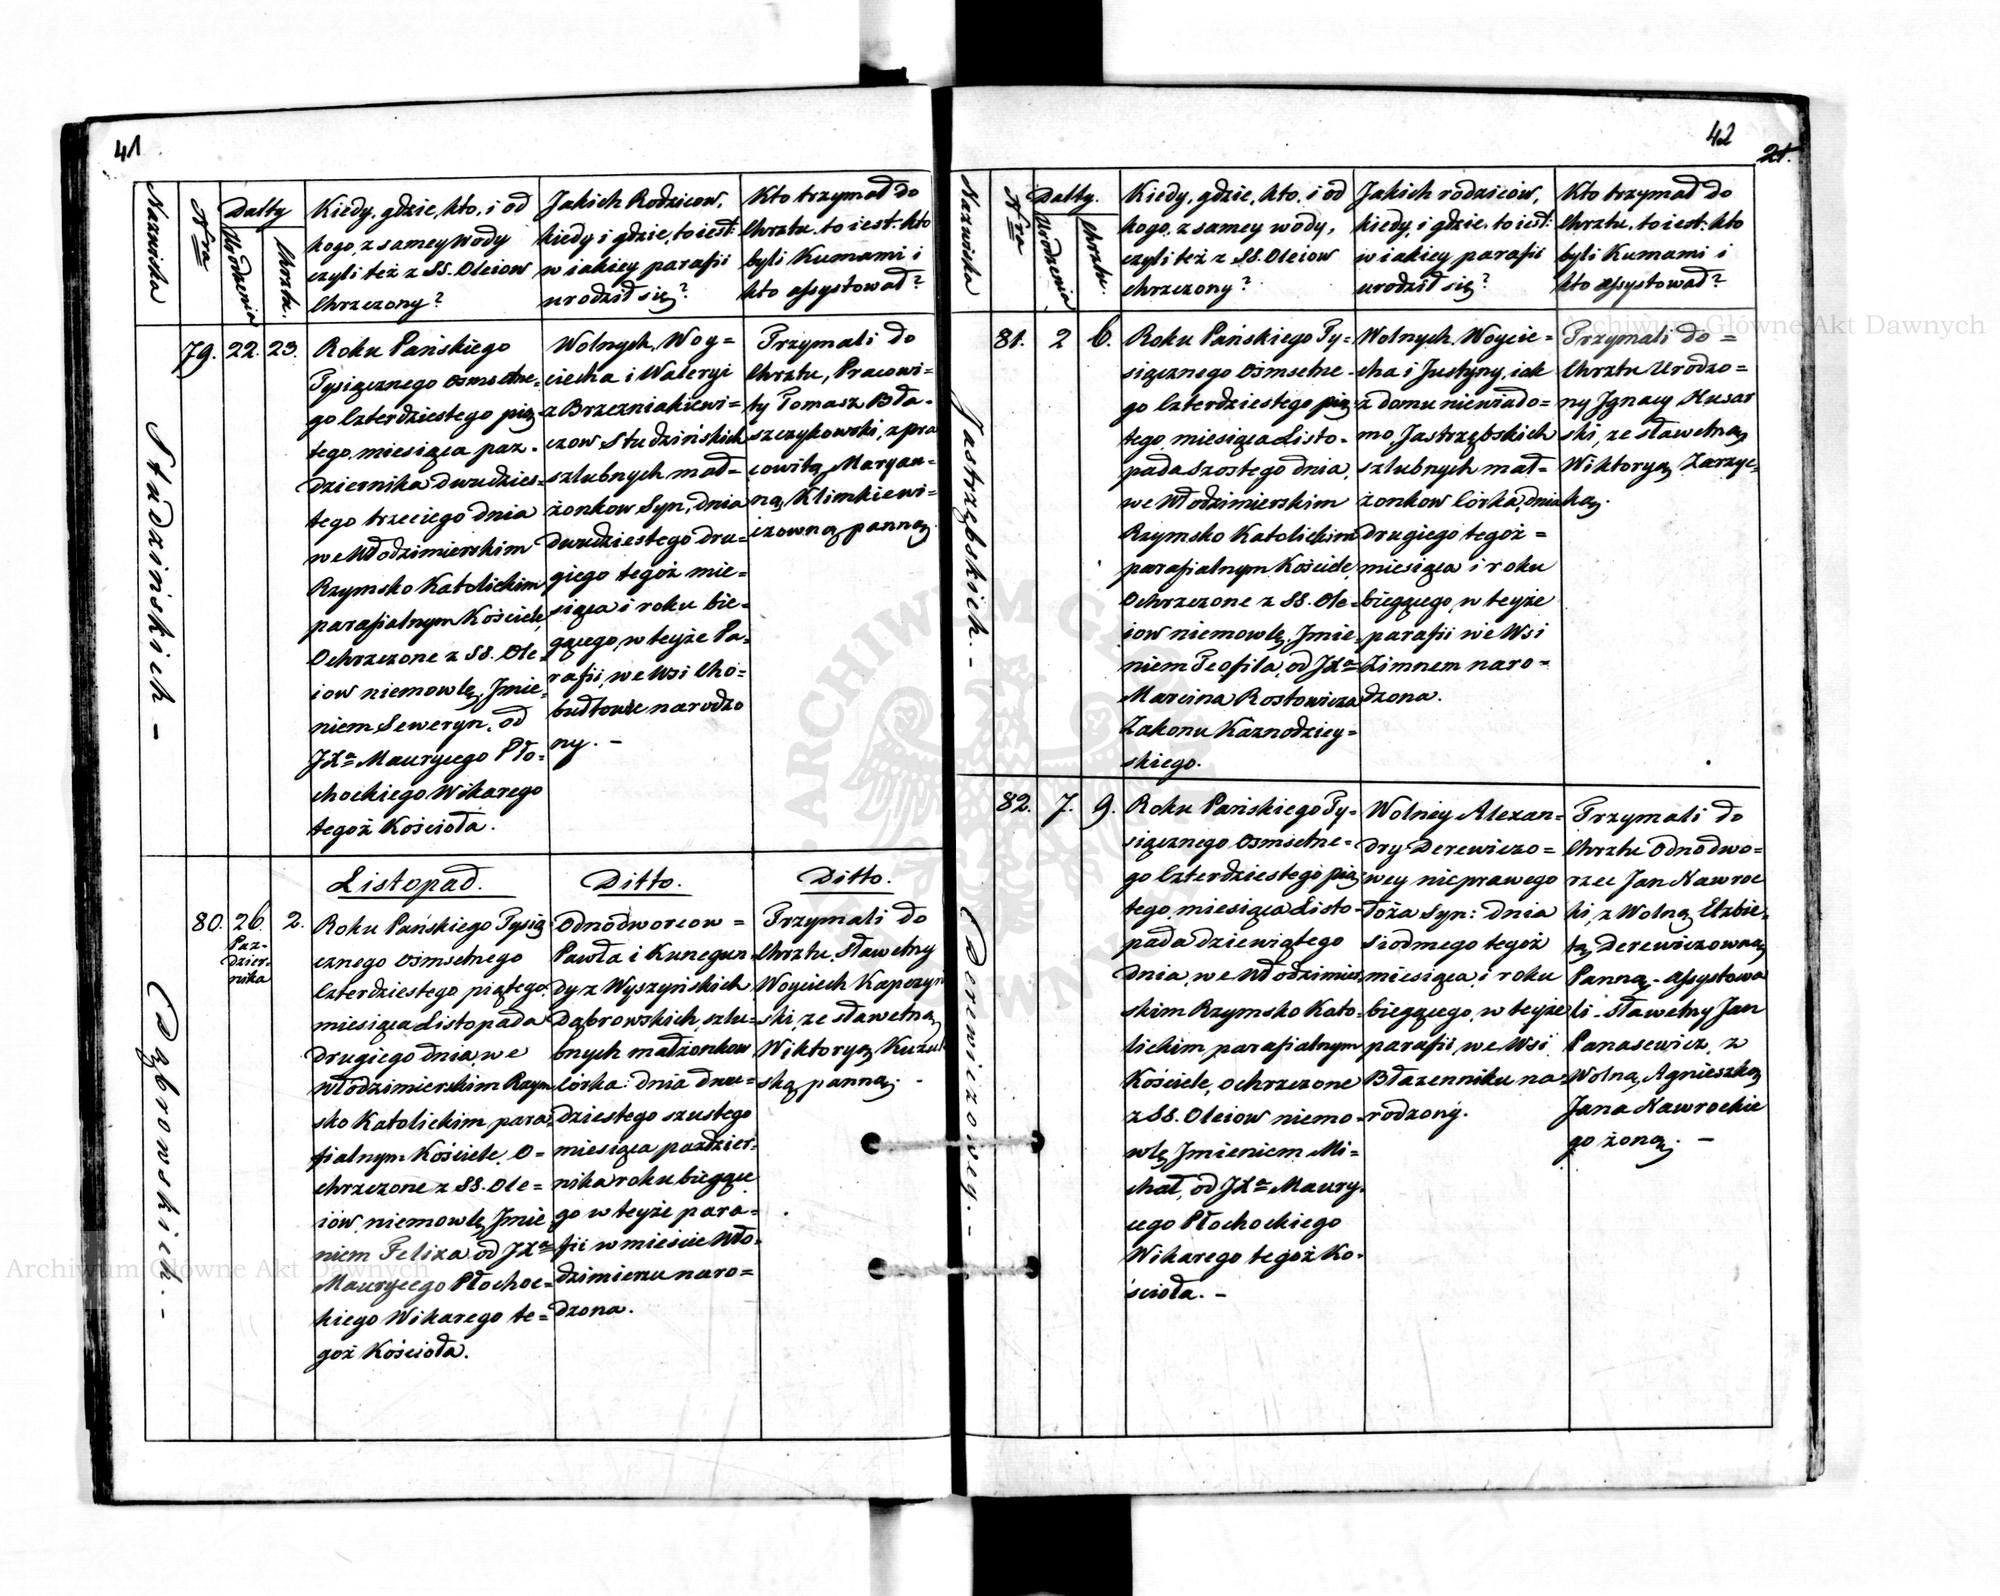 41
Nazwiska
Nra
Datty
Urodzenia
Chrztu.
Kiedy, gdzie, kto, i od
kogo, z samey wody
czyli też z SS. Oleiow
Chrzczony?
Jakich Rodzicow,
kiedy i gdzie, to iest:
w iakiey parafii
urodził się?
Kto trzymał do
Chrztu, to iest: kto
byli Kumami i
kto assystował?
Studzińskich -
79. 22. 23.
Roku Pańskiego
Tysiącznego osmsetne=
go Czterdziestego pią=
tego, miesiąca paz-
dziernika dwudzies=
tego trzeciego dnia
we Włodzimierskim
Rzymsko Katolickim
parafialnym Kościele,
Ochrzczone z SS. Ole-
iow niemowlę, Jmie-
niem Seweryn, od
JXa= Maurycego Pło-
chockiego Wikarego
tegoż Kościoła.
Wolnych, Woy=
ciecha i Waleryi
z Brzezniakiewi=
czow Studzińskich
szlubnych mał=
żonkow Syn, dnia
Dwudziestego dru=
giego tegoż mie=
siąca i roku bie-
gącego, w teyże Pa-
rafii, we Wsi Cho-
bułtowie narodzo
ny. -
Trzymali do
Chrztu, Pracowi=
ty Tomasz Bła-
szczykowski, z pra
cowitą Maryan-
ną Klimkiewi=
czowną panną.
Dąbrowskich. -
80. 26. Paz-
dzier-
nika
2.
Listopad.
Roku Pańskiego Tysią
cznego osmsetnego
Czterdziestego piątego,
miesiąca Listopada
Drugiego dnia, we
Włodzimierskim Rzym
sko Katolickim para-
fialnym Kościele, O=
chrzczone z SS. Ole=
iów, niemowlę, Jmie
niem Felixa, od JXa=
Maurycego Płochoc=
kiego Wikarego te=
goż Kościoła.
Ditto.
Odnodworcow =
Pawła i Kunegun
dy z Wyszyńskich,
Dąbrowskich, szlu=
bnych małżonkow
Córka: dnia dwu=
dziestego szustego
miesiąca paździer-
nika roku biegące
go w teyże para-
fii w mieście Wło-
dzimierzu naro=
dzona.
Ditto.
Trzymali do
Chrztu, Sławetny
Woyciech Kapczyń
ski, ze sławetną
Wiktoryą Kuzul
ską panną. -
42
21.
Nazwiska
Nra
Datty.
Urodzenia
Chrztu.
Kiedy, gdzie, kto, i od
kogo, z samey wody,
czyli też z SS. Oleiow
chrzczony?
Jakich rodziców,
kiedy, i gdzie, to iest:
w iakiey parafii
urodził się?
Kto trzymał do
Chrztu, to iest: kto
byli Kumami i
kto assystował?
Jastrzębskich. -
81. 2 6.
Roku Pańskiego Ty=
siącznego osmsetne-
go Czterdziestego pią-
tego, miesiąca Listo-
pada Szostego dnia,
we Włodzimierskim
Rzymsko Katolickim
parafialnym Kościele,
Ochrzczone z SS. Ole-
iow niemowlę, Jmie-
niem Teofila, od JXa=
Marcina Rostowicza
Zakonu Kaznodziey=
skiego.
Wolnych, Woycie=
cha i Justyny, iak
z domu niewiado=
mo, Jastrzębskich
szlubnych mał=
żonkow Córka, dnia
Drugiego tegoż =
miesiąca i roku
biegącego, w teyże
parafii we Wsi
Zimnem naro=
dzona.
Trzymali do =
Chrztu Urodzo=
ny Jgnacy Husar
ski, ze sławetną
Wiktoryą Zarzyc-
ką.
Derewiczowey. -
82. 7. 9.
Roku Pańskiego Ty-
siącznego osmsetne-
go Czterdziestego pią
tego, miesiąca Listo-
pada dziewiątego
Dnia, we Włodzimier
skim Rzymsko Kato-
lickim parafialnym
Kościele, ochrzczone
z SS. Oleiow niemo-
wlę Jmieniem Mi=
chał, od JXa= Maury-
cego Płochockiego
Wikarego tegoż Ko-
ścioła. -
Wolney Alexan=
dry Derewiczo=
wey nieprawego
łoża Syn: dnia
Siodmego tegoż
miesiąca, i roku
biegącego, w teyże
parafii, we Wsi
Błazenniku na-
rodzony.
Trzymali do
Chrztu Odnodwo=
rzec Jan Nawroc
ki, z Wolną Elzbie-
tą Derewiczowną
Panną, - assystowa
li - Sławetny Jan
Panasewicz, z
Wolną Agnieszką
Jana Nawrockie
go żoną. -
Archiwum Główne Akt Dawnych
Archiwum Główne Akt Dawnych